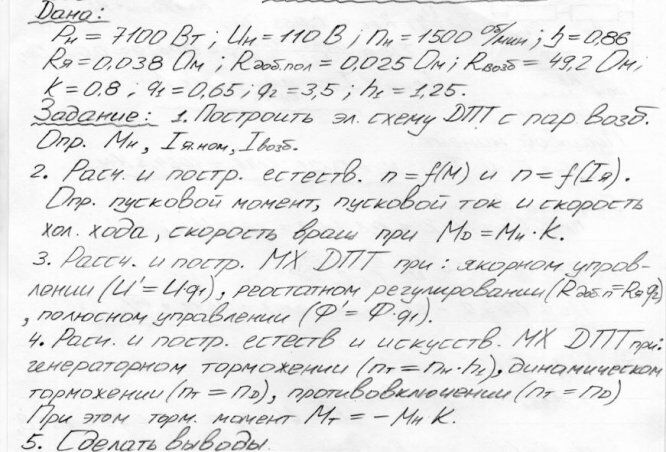 Дана:
Pн = 7100 Вт; Uн = 110 В; nн = 1500 об/мин; η = 0,86
Rя = 0,038 Ом; Rдоб.пол = 0,025 Ом; Rвозб = 49,2 Ом;
K = 0,8; q1 = 0,65; q2 = 3,5; h1 = 1,25.
Задание: 1. Построить эл. схему ДПТ с пар. возб.
Опр. Mн, Iя.ном, Iвозб.
2. Расч. и постр. естеств. n=f(M) и n=f(Iя).
Опр. пусковой момент, пусковой ток и скорость
хол. хода, скорость вращ при Mд = Mн·K.
3. Рассч. и постр. МХ ДПТ при: якорном управ-
лении (U' = U·q1), реостатном регулировании (Rдоб.п = Rя q2)
, полюсном управлении (Ф' = Ф·q1).
4. Расч. и постр. естеств и искусств. МХ ДПТ при:
генераторном торможении (nт = nн·h1), динамическом
торможении (nт = nд), противовключении (nт = nд)
При этом торм. момент Mт = – Mн K.
5. Сделать выводы.